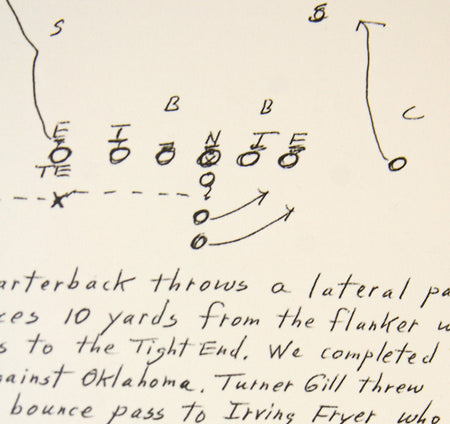 S S
B B C
E I N I E
TE
arterback throws a lateral pa
ces 10 yards from the flanker w
s to the Tight End. We completed
gainst Oklahoma. Turner Gill threw
bounce pass to Irving Fryer who